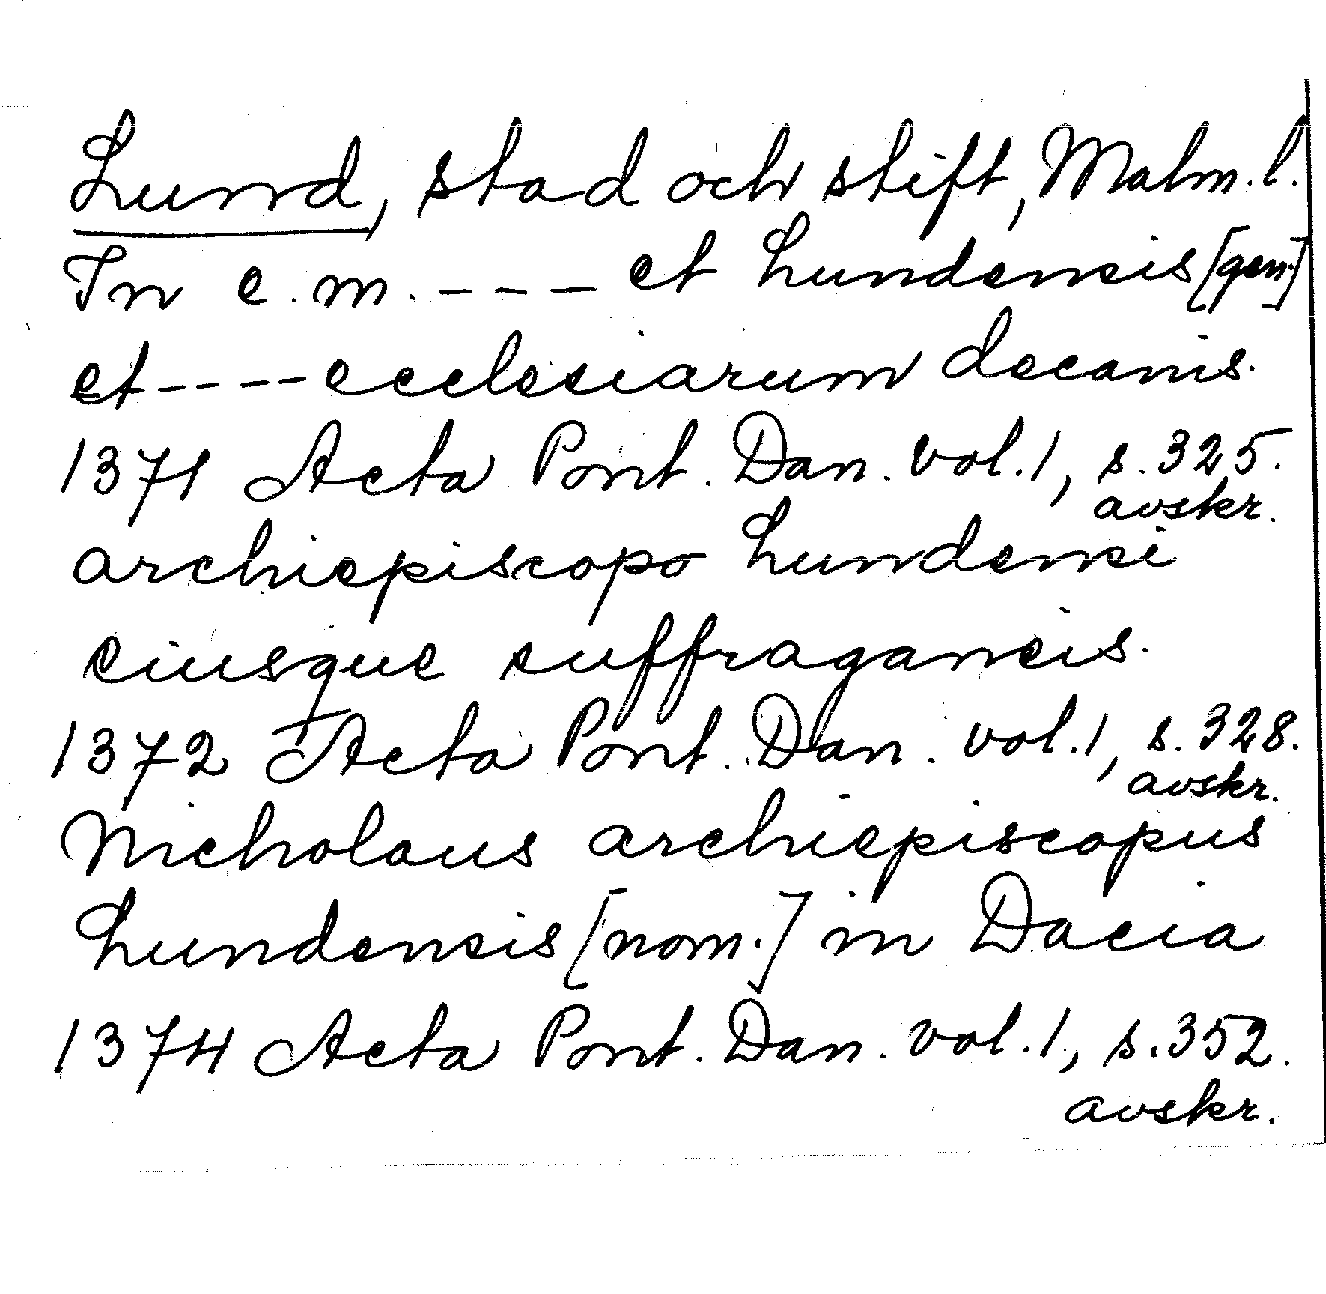 Lund, stad och stift, Malm. l.
In e. m. - - - et Lundensis [gen.]
et - - - - ecclesiarum decanis.
1371 Acta Pont. Dan. vol. 1, s. 325.
avskr.
archiepiscopo Lundensi
eiusque suffraganeis.
1372 Acta Pont. Dan. vol. 1, s. 328.
avskr.
Nicholaus archiepiscopus
Lundensis [nom.] in Dacia
1374 Acta Pont. Dan. vol. 1, s. 352.
avskr.